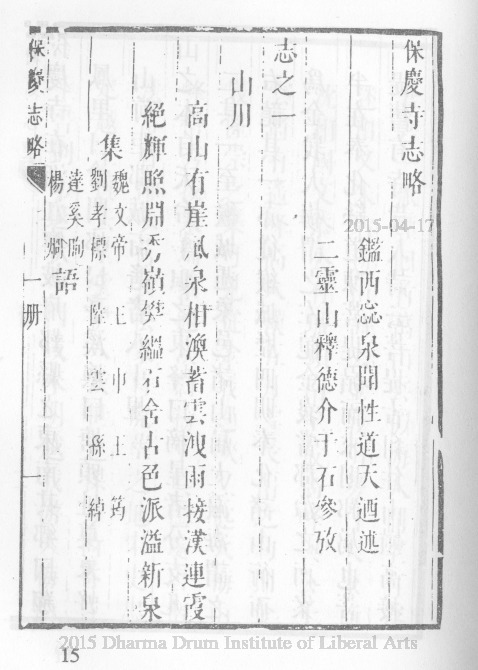 保慶寺志略
鑑西蕊泉聞性道天迺述
二靈山釋德介于石參攷
志之一
山川
高山有崖風泉相渙蓄雲洩雨接漢連霞
絕輝照淵秀嶺樊縕石含古色派溢新泉
集
魏文帝 王巾 王筠
劉孝標 陸雲 孫綽
達奚珣
楊烱
語
保慶志略 一册 一
2015-04-17
2015 Dharma Drum Institute of Liberal Arts
15